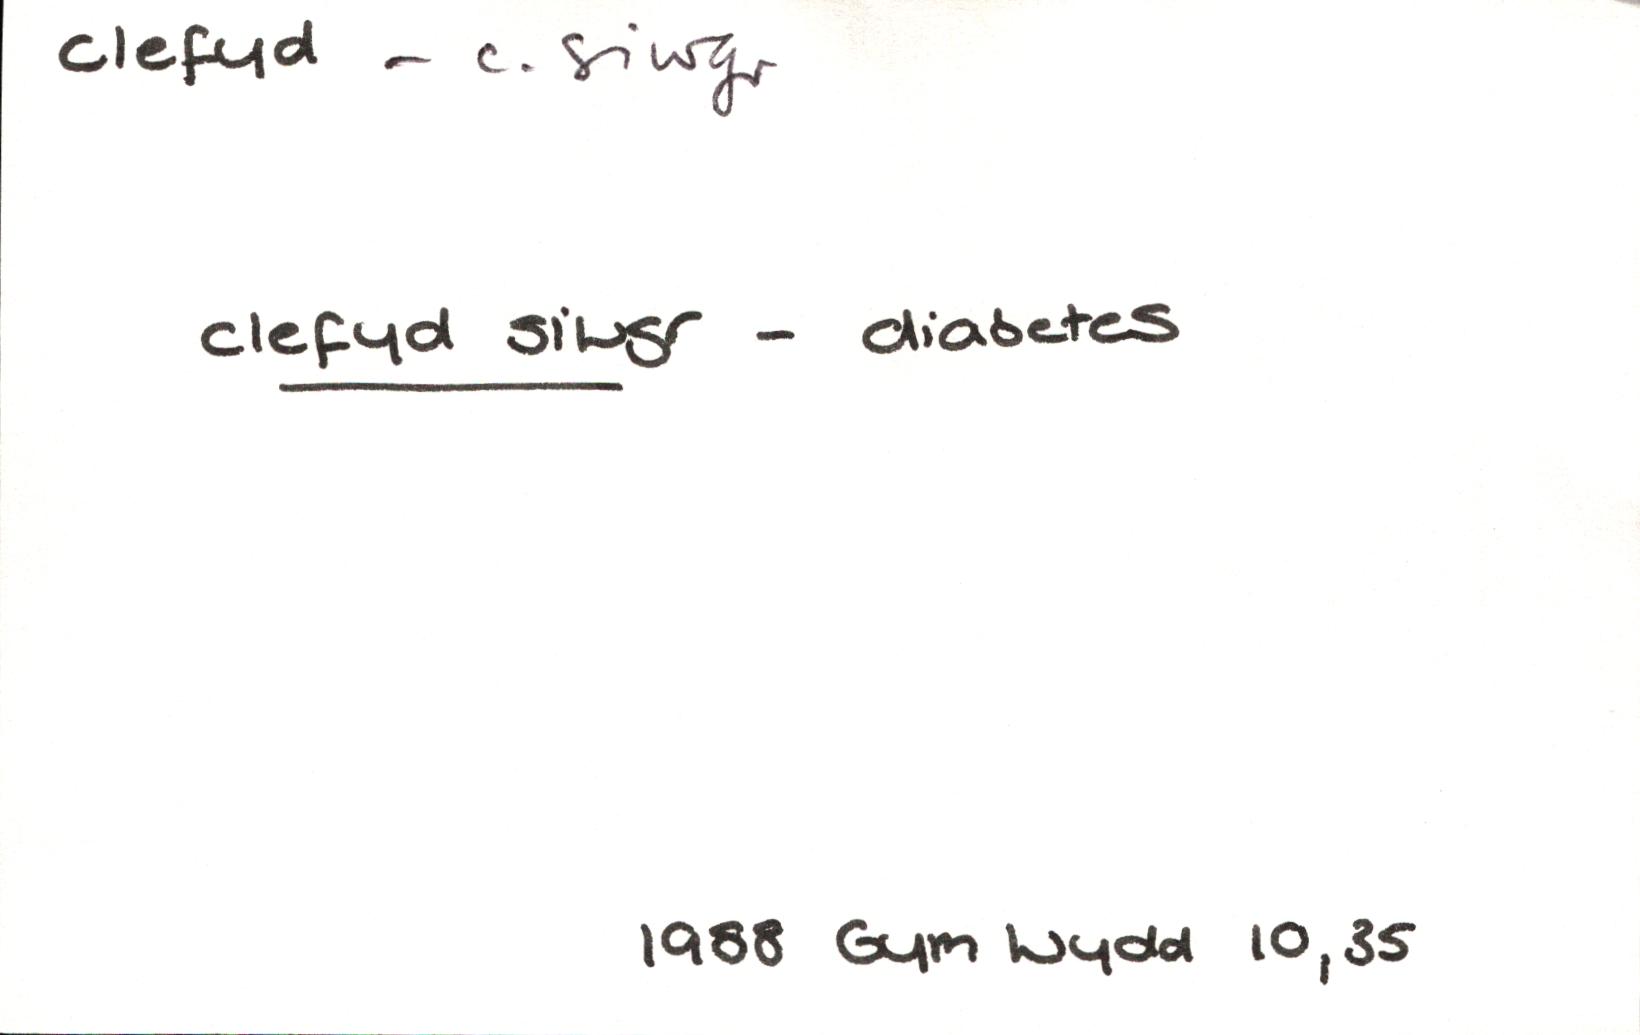 clefyd - c. siwgr
clefyd siwgr - diabetes
1988 Gym Wydd 10,35